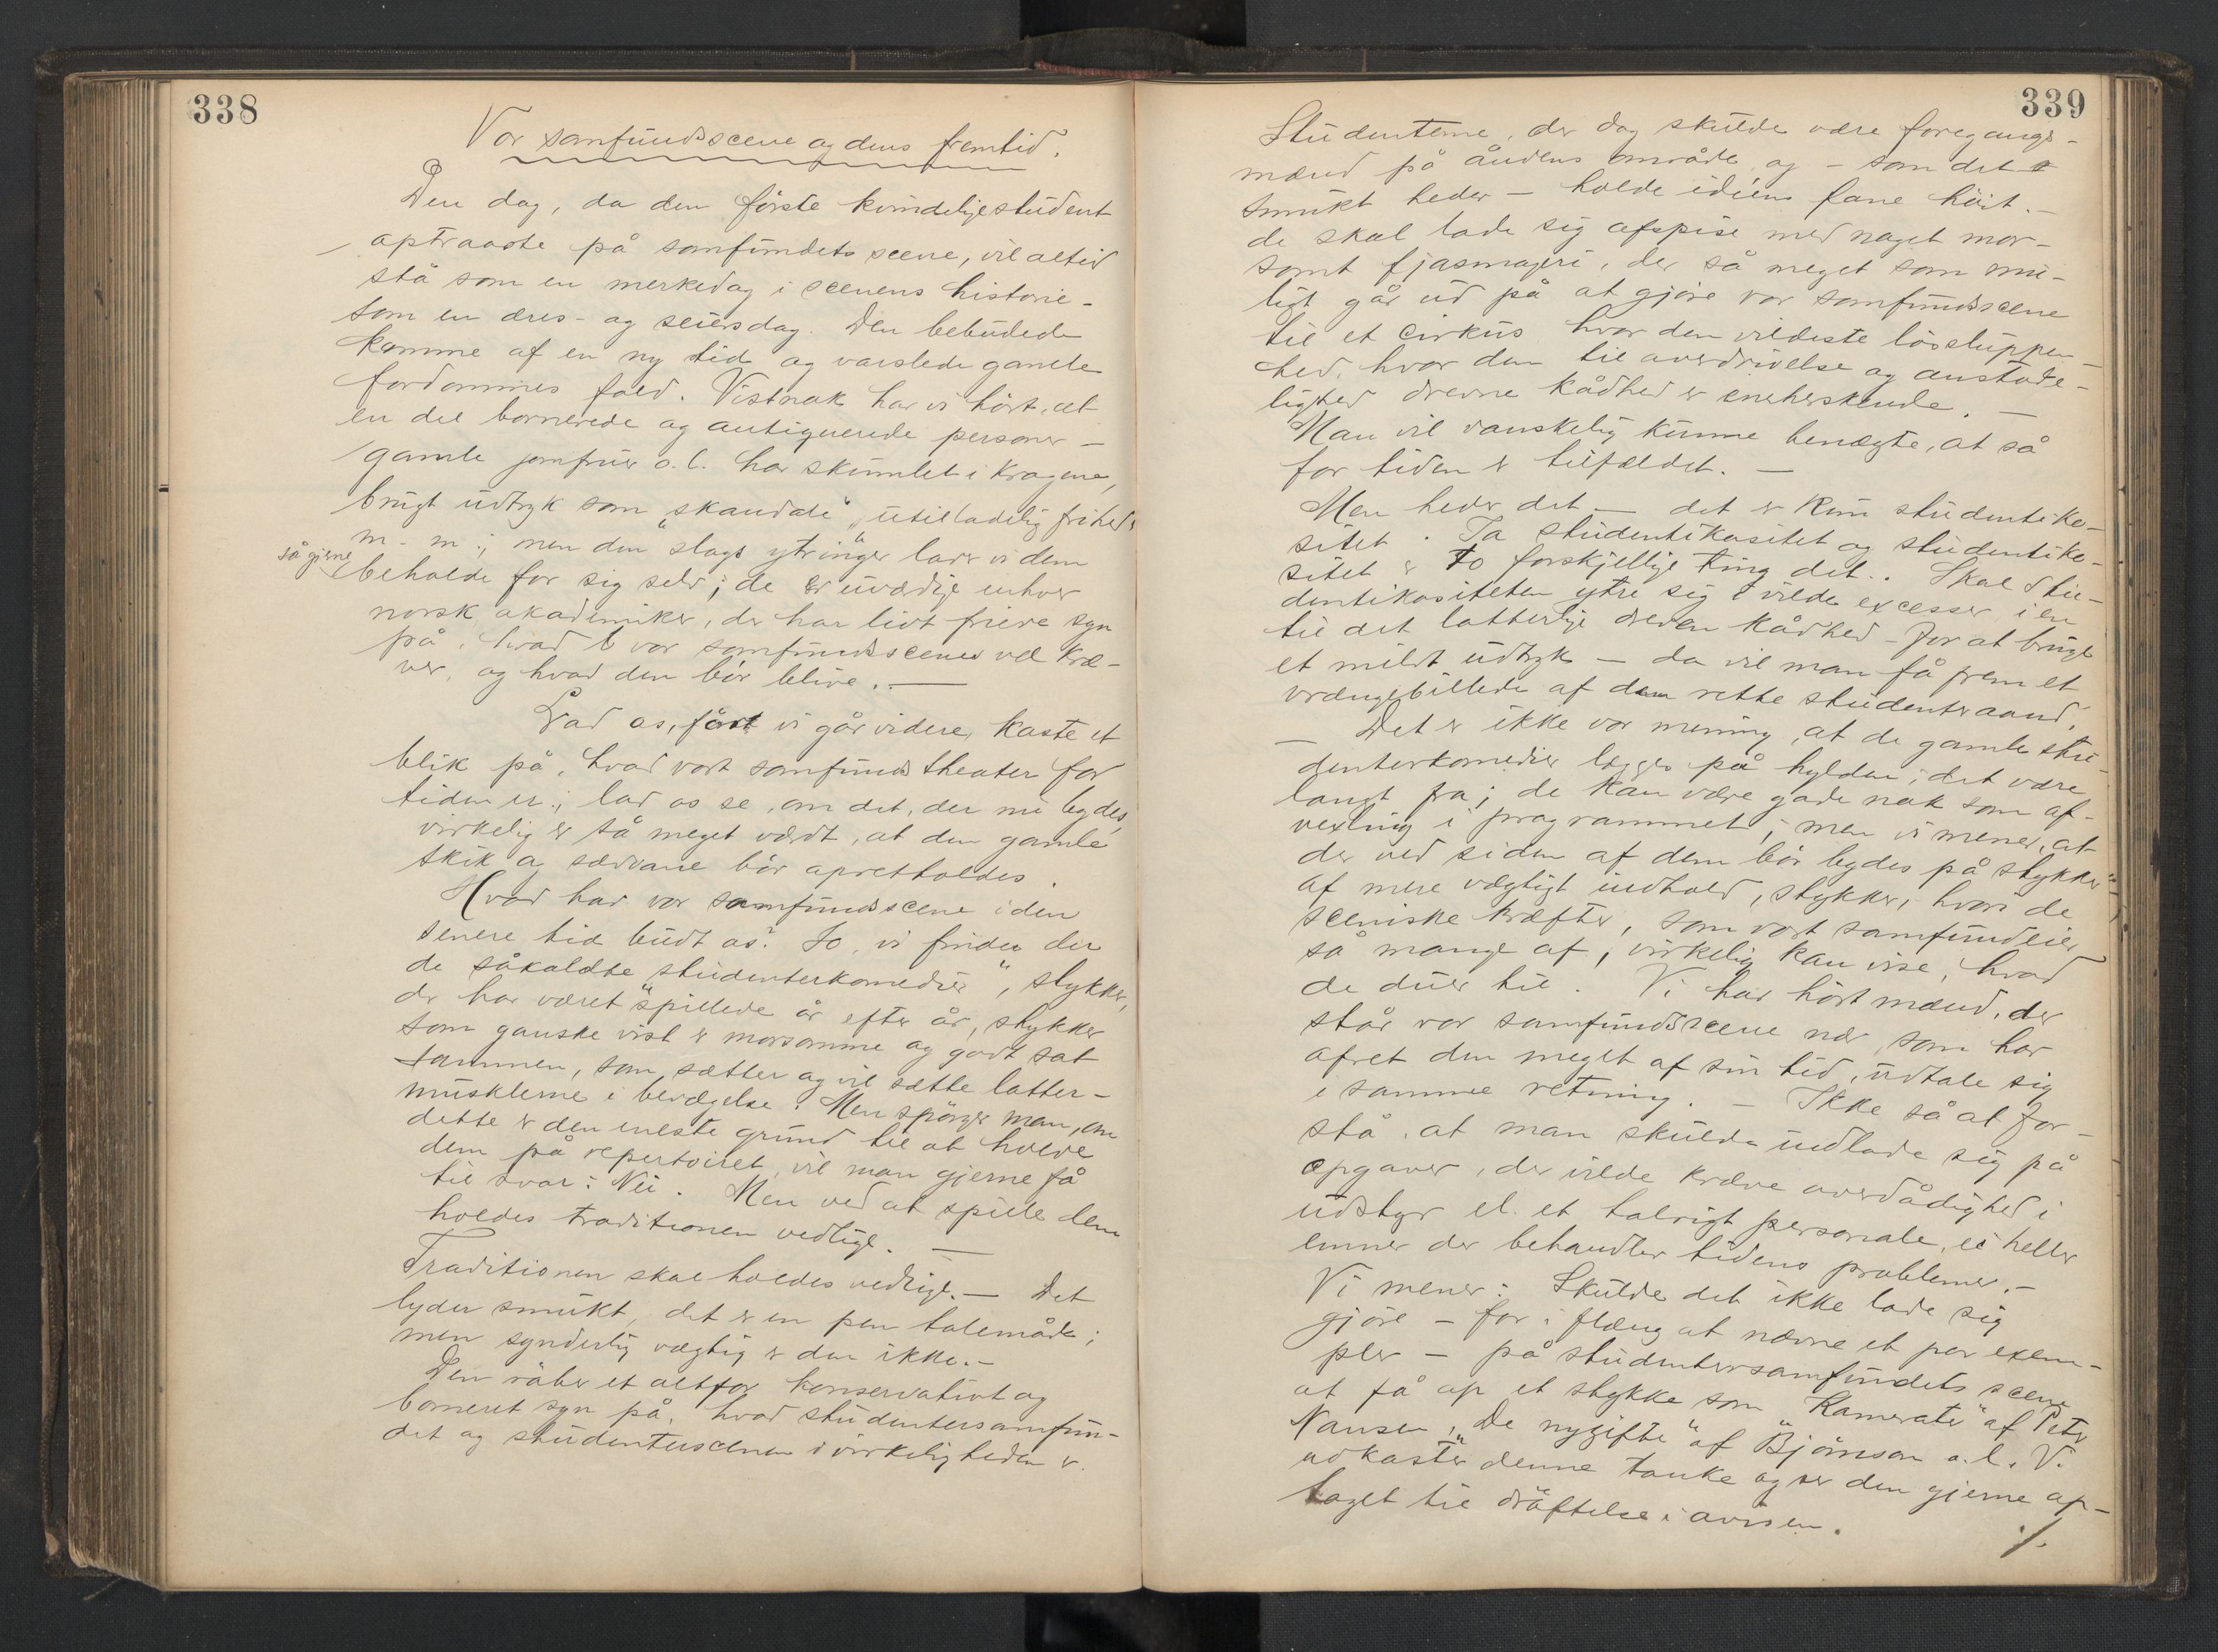 338
Vor samfundsscene og dens fremtid.
Den dag, da den første kvindelige student
optraadte på samfundets scene, vil altid
stå som en merkedag i scenens historie -
som en æres- og seiersdag. Den bebudede
komme af en ny tid og varslede gamle
fordommes fald. Vistnok har vi hørt, at
en del bornerede og antiquerede personer -
gamle jomfruer o.l. har skumlet i kragene,
brugt udtryk som "skandale", utilladelig frihed"
m. m.; men den slags ytringer lar vi dem
så gjerne
beholde for sig selv; de er uværdige enhver
norsk akademiker, der har lidt friere syn
på, hvad vor samfundsscene vel kræ-
ver, og hvad den bør blive. —
Lad os, først vi går videre, kaste et
blik på, hvad vort samfundstheater for
tiden er; lad os se, om det, der nu bydes,
virkelig er så meget værdt, at den gamle
skik og sædvane bør opretholdes.
Hvad har vor samfundsscene i den
senere tid budt os? Jo, vi finder der
de såkaldte "studenterkomedier", stykker,
der har været spillede år efter år, stykker
som ganske vist er morsomme og godt sat
sammen, som sætter og vil sætte latter-
musklerne i bevægelse. Men spørger man, om
dette er den eneste grund til at holde
dem på repertoiret, vil man gjerne få
til svar: Nei. Men ved at spille dem
holdes traditionen vedlige. —
Traditionen skal holdes vedlige. — Det
lyder smukt, det er en pen talemåde;
men synderlig vægtig er den ikke. -
Den råber et altfor konservativt og
borneret syn på, hvad studentersamfun-
det og studenterscenen i virkeligheden er.
339
Studenterne, der dog skulde være foregangs-
mænd på åndens område og - som det
smukt heder - holde idéens fane høit. -
de skal lade sig afspise med noget mor-
somt fjasmageri, der så meget som mu-
ligt går ud på at gjøre vor samfundsscene
til et cirkus hvor den vildeste løssluppen-
hed, hvor den til overdrivelse og anstøde-
lighed drevne kådhed er eneherskende. —
Man vil vanskelig kunne benægte, at så
for tiden er tilfældet. —
Men heder det - det er kun studentiko-
sitet. Ja studentikositet og studentiko-
sitet er to forskjellige ting det.. Skal stu-
dentikositeten ytre sig i vilde excesser i en
til det latterlige dreven kådhed - for at bruge
et mildt udtryk - da vil man få frem et
vrængebillede af den rette studenteraand.
— Det er ikke vor mening, at de gamle stu-
denterkomedier lægges på hylden; det være
langt fra; de kan være gode nok som af-
vexling i programmet; men vi mener, at
der ved siden af dem bør bydes på stykker
af mere vægtigt indhold, stykker, hvori de
sceniske kræfter, som vort samfund eier
så mange af, virkelig kan vise, hvad
de duer til. Vi har hørt mænd, der
står vor samfundsscene nær, som har
ofret den meget af sin tid, udtale sig
i samme retning. - Ikke så at for-
stå, at man skulde indlade sig på
opgaver, der vilde kræve overdådighed i
udstyr el. et talrigt personale, ei heller
emner der behandler tidens problemer. -
Vi mener: Skulde det ikke lade sig
gjøre - for i flæng at nævne et par exem-
pler - på studentersamfundets scene
at få op et stykke som "Kamerater" af Peter
Nansen, "De nygifte" af Bjørnson o.l. Vi
udkaster denne tanke og ser den gjerne op-
taget til drøftelse i avisen.
./.